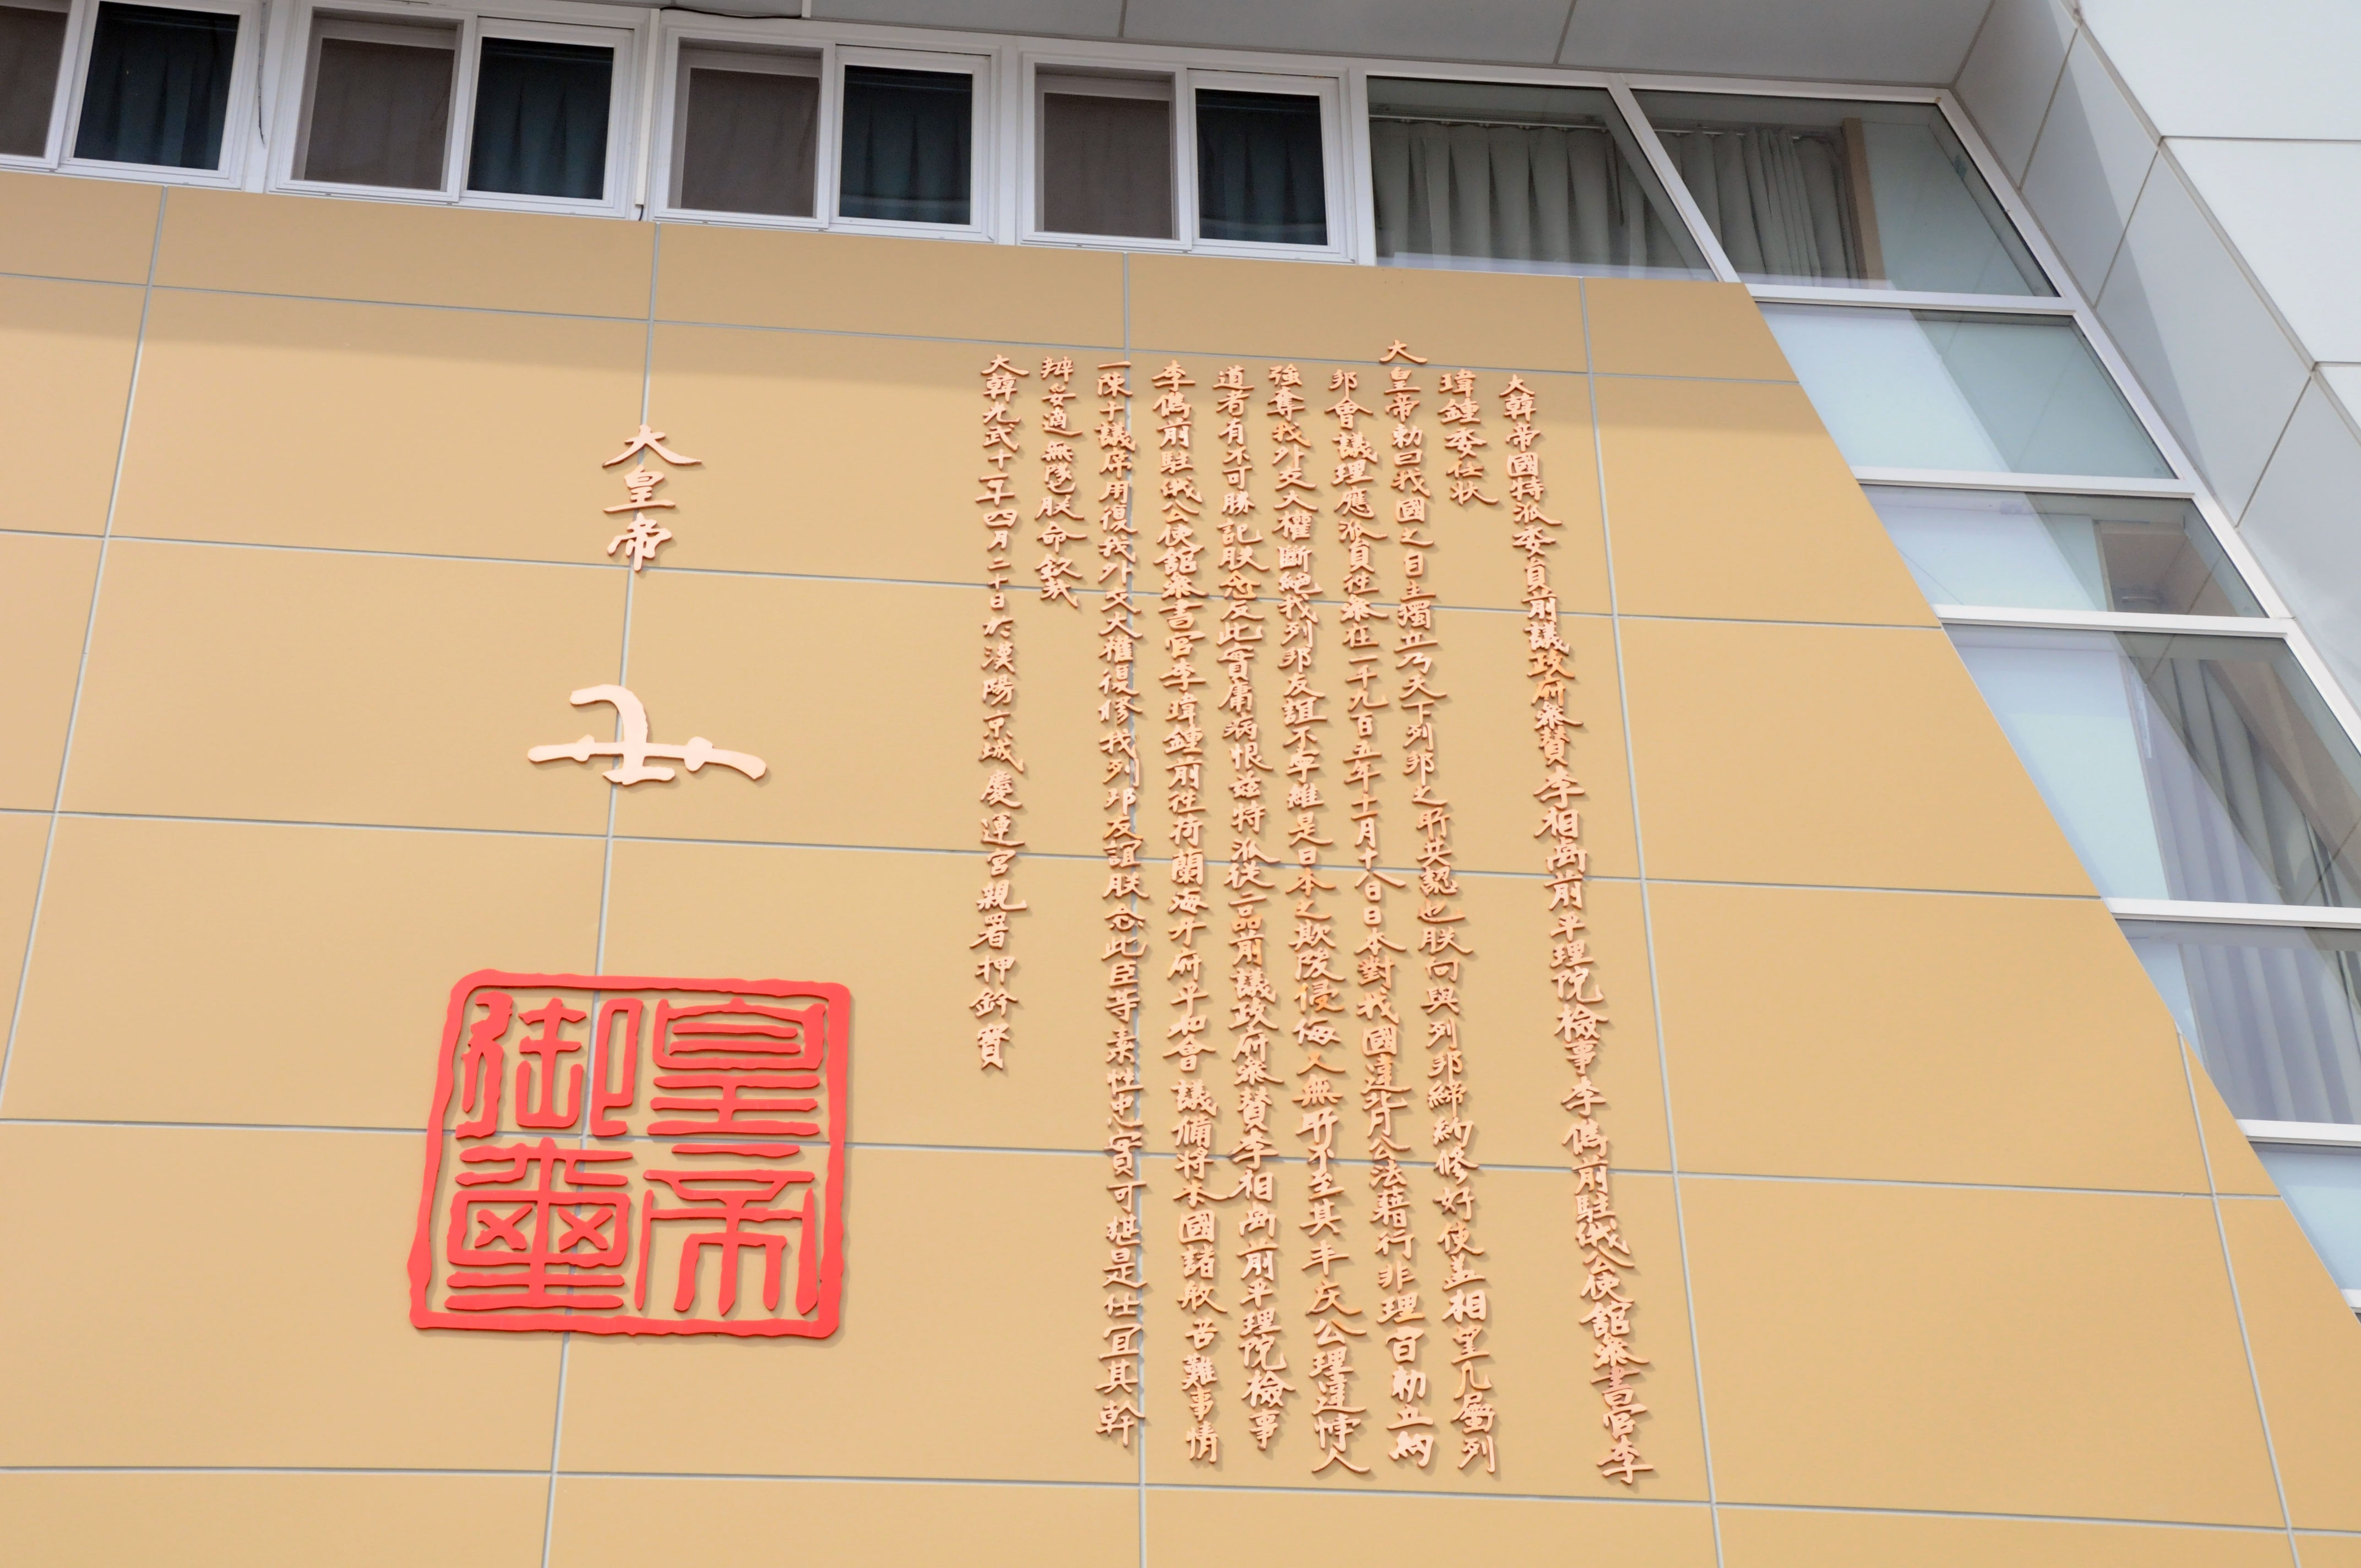 大韓帝國特派委員前議政府參贊李相卨前平理院檢事李儁前駐俄公使館參書官李
瑋鍾委任狀
大皇帝勅曰我國之自主獨立乃天下列邦之所共認也朕向與列邦締約修好使盖相望凡屬列
邦會議理應派員往參在一千九百五年十一月十八日日本對我國違背公法藉行非理百勒立約
強奪我外交大權斷絶我列邦友誼不寧維是日本之欺陵侵侮又無所不至其丰戾公理違悖人
道者有不可勝記朕念及此實庸病恨兹特派從一品前議政府參贊李相卨前平理院檢事
李儁前駐俄公使館參書官李瑋鍾前往荷蘭海牙府平和會議備將本國諸般苦難事情
一陳于議席用復我外交大權復修我列邦友誼朕念此臣等素性忠實可堪是任宜其幹
辨妥適無隧也朕命欽哉
大韓光武十一年四月二十日於漢陽京城慶運宮親署押鈐寶
大皇帝
皇帝御璽